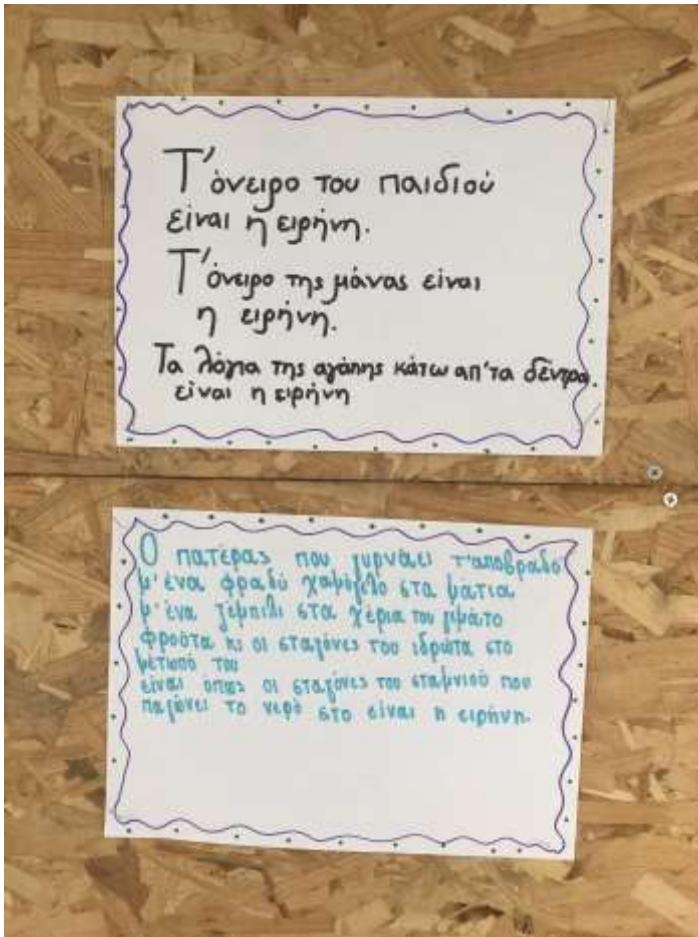 Τ' όνειρο του παιδιού
είναι η ειρήνη.
Τ' όνειρο της μάνας είναι
η ειρήνη.
Τα λόγια της αγάπης κάτω απ' τα δέντρα
είναι η ειρήνη
Ο πατέρας που γυρνάει τ' αποβραδο
μ' ένα φραδύ χαμόγελο στα μάτια
μ' ένα ζεμπίλι στα χέρια του γεμάτο
φρούτα κι οι σταγόνες του ιδρώτα στο
μέτωπό του
είναι όπως οι σταγόνες του σταμνιού που
παγώνει το νερό στο είναι η ειρήνη.